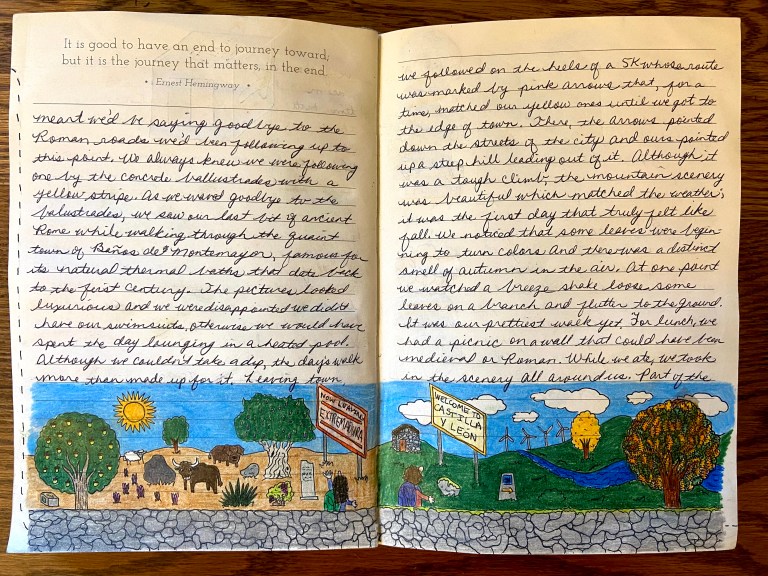 It is good to have an end to journey toward;
but it is the journey that matters, in the end.
• Ernest Hemingway •
meant we'd be saying goodbye to the
Roman roads we'd been following up to
this point. We always knew we were following
one by the concrete ballustrades with a
yellow stripe. As we waved goodbye to the
balustrades, we saw our last bit of ancient
Rome while walking through the quaint
town of Baños de Montemayor, famous for
its natural thermal baths that date back
to the first century. The pictures looked
luxurious and we were disappointed we didn't
have our swimsuits, otherwise we would have
spent the day lounging in a heated pool.
Although we couldn't take a dip, the day's walk
more than made up for it. Leaving town
NOW LEAVING
EXTREMADURA
we followed on the heels of a 5K whose route
was marked by pink arrows that, for a
time, matched our yellow ones until we got to
the edge of town. There, the arrows pointed
down the streets of the city and ours pointed
up a steep hill leading out of it. Although it
was a tough climb, the mountain scenery
was beautiful which matched the weather;
it was the first day that truly felt like
fall. We noticed that some leaves were begin-
ning to turn colors and there was a distinct
smell of autumn in the air. At one point
we watched a breeze shake loose some
leaves on a branch and flutter to the ground.
It was our prettiest walk yet. For lunch, we
had a picnic on a wall that could have been
medieval or Roman. While we ate, we took
in the scenery all around us. Part of the
WELCOME TO
CASTILLA
Y LEÓN